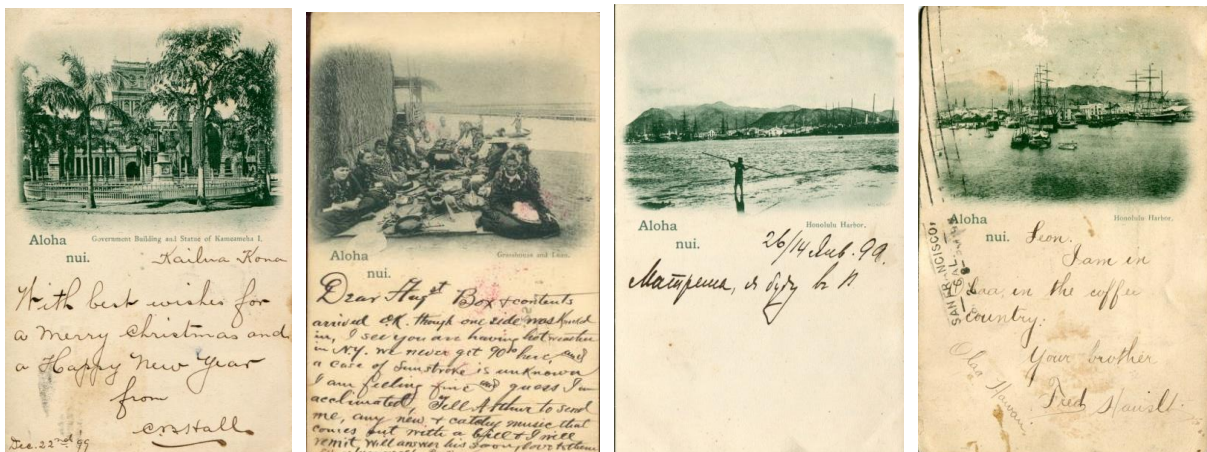 Aloha
nui.
Government Building and Statue of Kamehameha I.
Kailua Kona
With best wishes for
a Merry Christmas and
a Happy New Year
from
Dec. 22nd 99
Aloha
nui.
Grasshouse and Luau.
Dear Augst Box & contents
arrived O.K. though one side was
in, I see you are having hot weather
in N.Y. we never get 90° here, and
a case of Sunstroke is unknown
I am feeling fine and guess I'm
acclimated, Tell Arthur to send
me, any new & catchy music that
comes out with a bill & I will
remit, Will answer his soon, love to them
Aloha
nui.
Honolulu Harbor.
26/14 99.
Матреша, я буду въ
Aloha
nui.
Honolulu Harbor.
SAN FRANCISCO,
CAL.
Leon.
I am in
Olaa, in the coffee
country.
Your brother
Fred
Olaa Hawaii